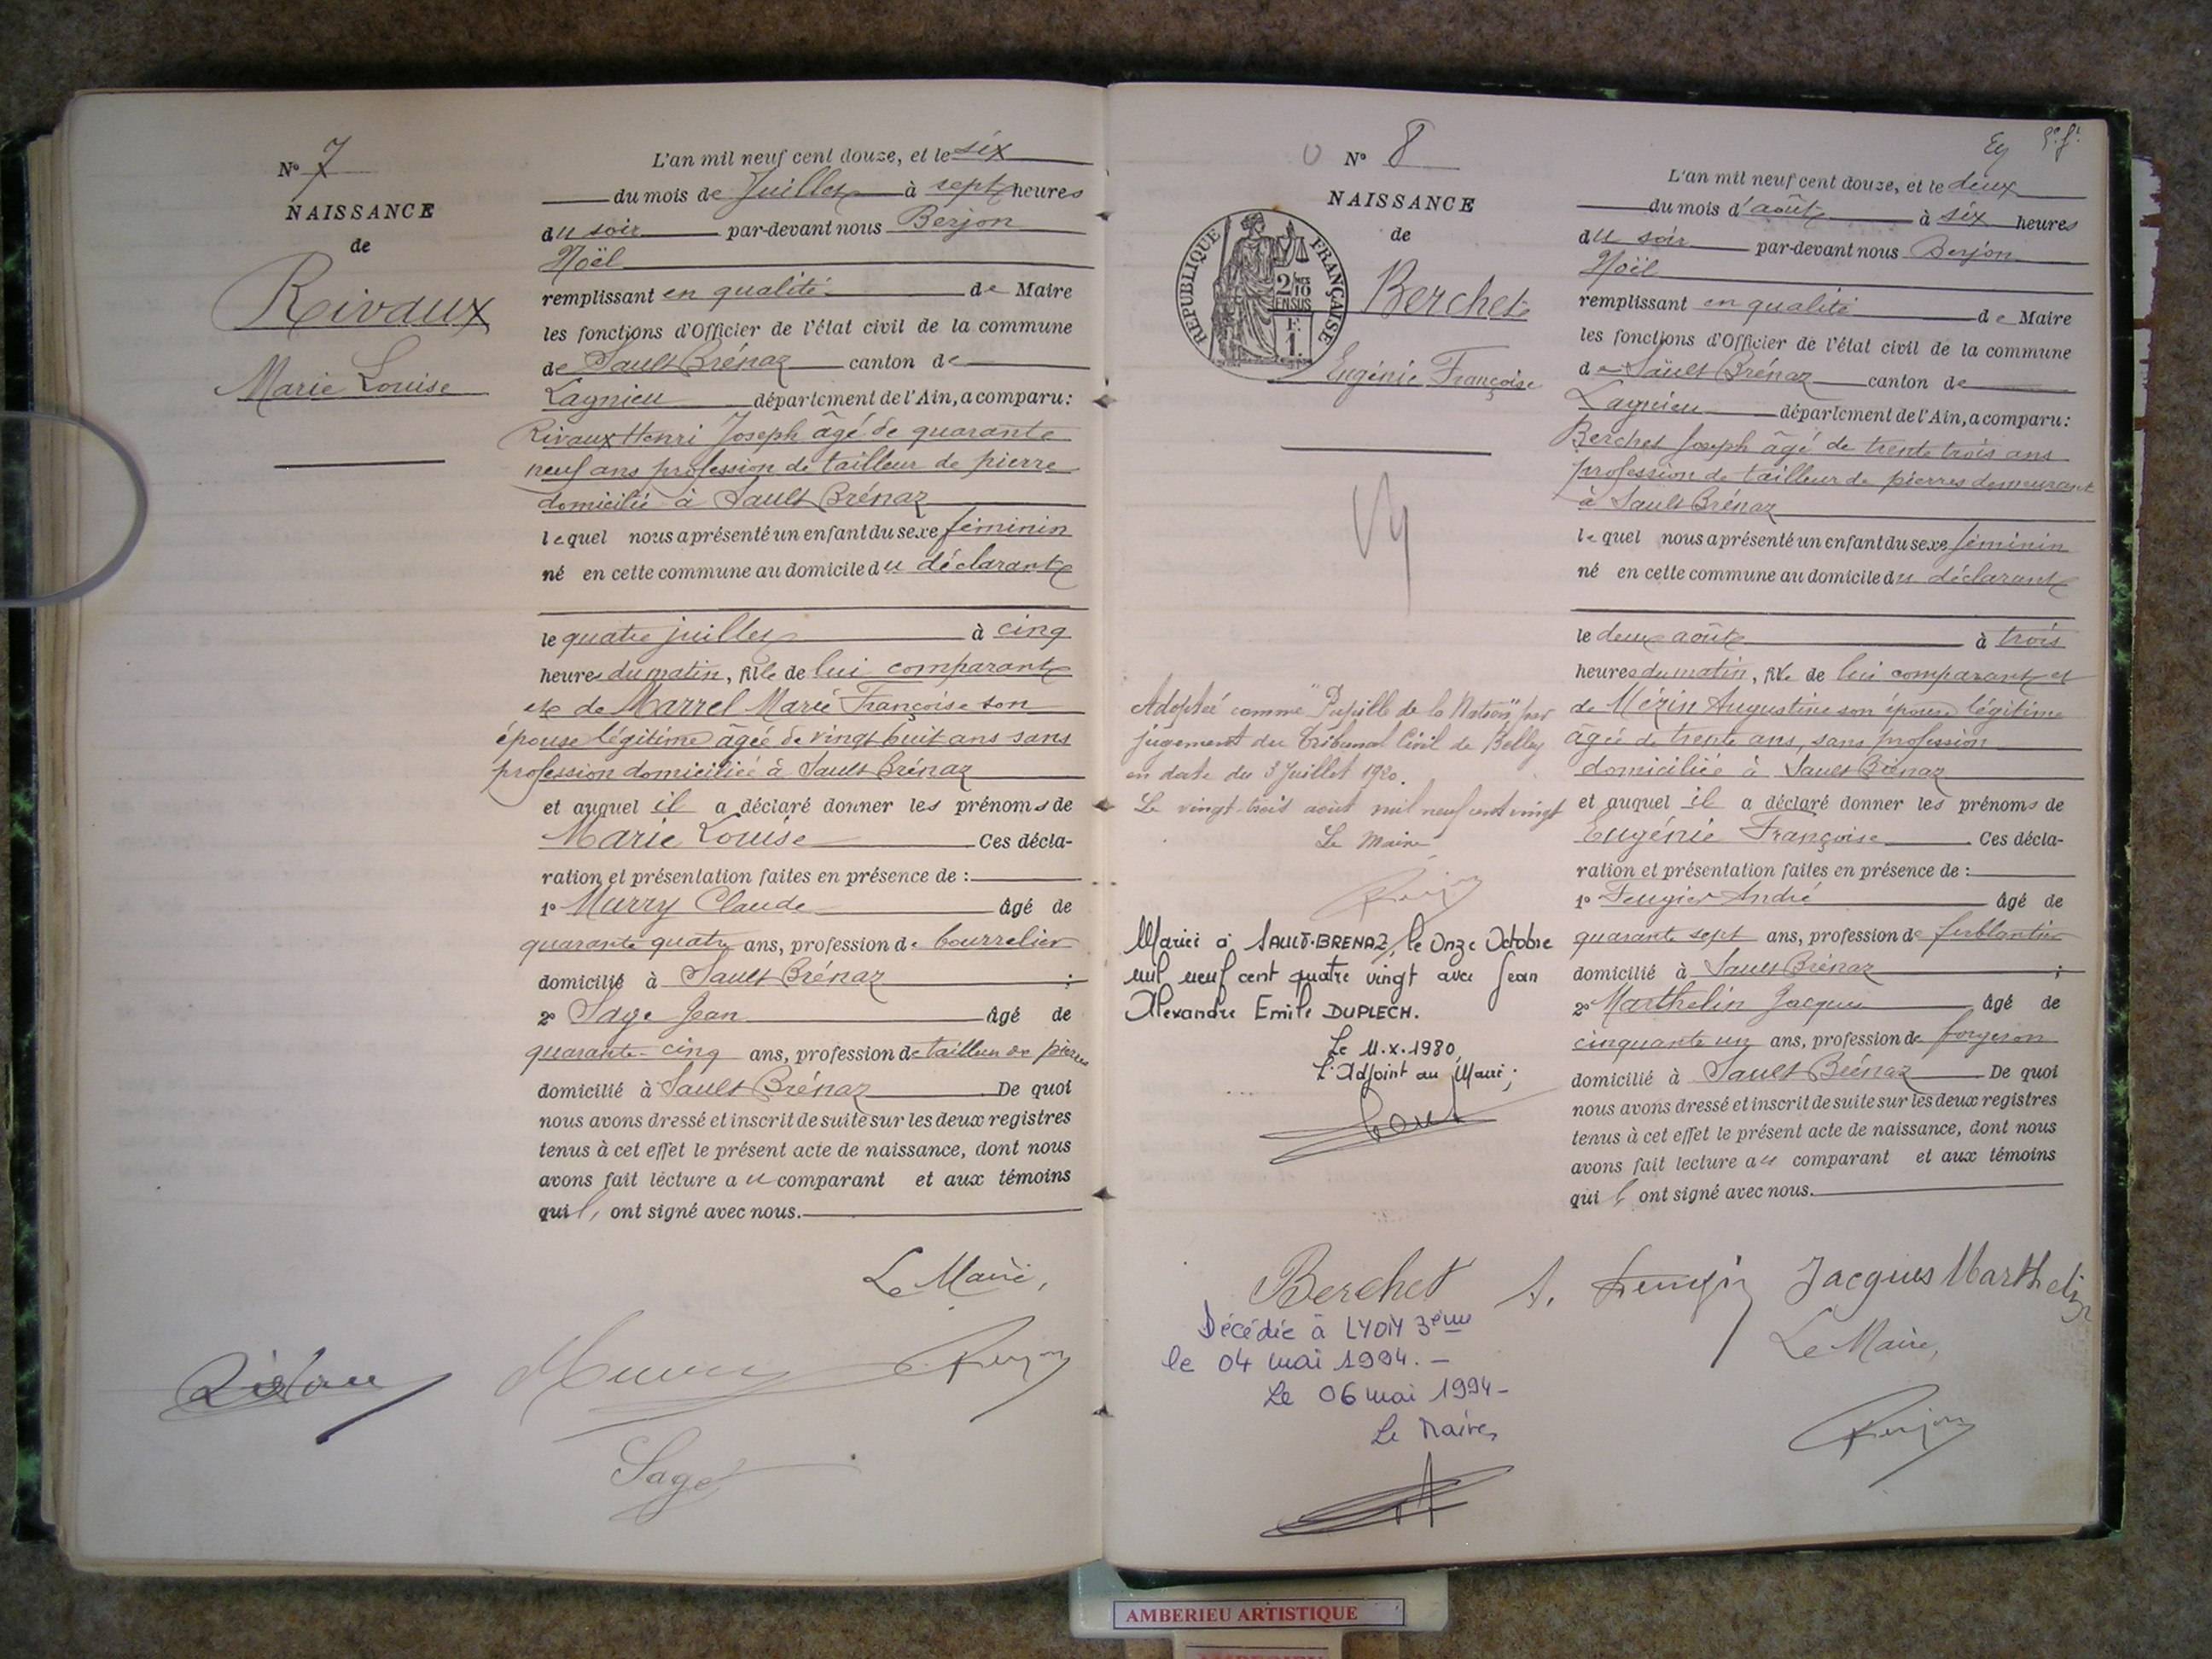 N° 7
NAISSANCE
de
Rivaux
Marie Louise
L'an mil neuf cent douze, et le six
du mois de Juillet à sept heures
du soir par-devant nous Berjon
Noël
remplissant en qualité de Maire
les fonctions d'Officier de l'état civil de la commune
de Sault Brénaz canton de
Lagnieu département de l'Ain, a comparu :
Rivaux Henri Joseph âgé de quarante
neuf ans profession de tailleur de pierre
domicilié à Sault Brénaz
lequel nous a présenté un enfant du sexe féminin
né en cette commune au domicile du déclarant
le quatre juillet à cinq
heures du matin, fille de lui comparant
et de Marrel Marie Françoise son
épouse légitime âgée de vingt huit ans sans
profession domiciliée à Sault Brénaz
et auquel il a déclaré donner les prénoms de
Marie Louise Ces décla-
ration et présentation faites en présence de :
1° Murry Claude âgé de
quarante quatre ans, profession de bourrelier
domicilié à Sault Brénaz ;
2° Sage Jean âgé de
quarante-cinq ans, profession de tailleur de pierres
domicilié à Sault Brénaz De quoi
nous avons dressé et inscrit de suite sur les deux registres
tenus à cet effet le présent acte de naissance, dont nous
avons fait lecture au comparant et aux témoins
qui l, ont signé avec nous.
Le Maire,
Sage
N° 8
NAISSANCE
de
RÉPUBLIQUE FRANÇAISE
2/10
EN SUS
F.
1.
Berchet
Eugénie Françoise
Adoptée comme "Pupille de la Nation" par
jugement du Tribunal Civil de Belley
en date du 3 Juillet 1920.
Le vingt-trois août mil neuf cent vingt
Le Maire
Berjon
Mariée à SAULT-BRENAZ, le Onze Octobre
mil neuf cent quatre vingt avec Jean
Alexandre Emile DUPLECH.
Le 11.X.1980,
L'Adjoint au Maire,
L'an mil neuf cent douze, et le deux
du mois d'août à six heures
du soir par-devant nous Berjon
Noël
remplissant en qualité de Maire
les fonctions d'Officier de l'état civil de la commune
de Sault Brénaz canton de
Lagnieu département de l'Ain, a comparu :
Berchet Joseph âgé de trente trois ans
profession de tailleur de pierres demeurant
à Sault Brénaz
lequel nous a présenté un enfant du sexe féminin
né en cette commune au domicile du déclarant
le deux août à trois
heures du matin, fille de lui comparant et
de Mézin Augustine son épouse légitime
âgée de trente ans, sans profession
domiciliée à Sault Brénaz
et auquel il a déclaré donner les prénoms de
Eugénie Françoise Ces décla-
ration et présentation faites en présence de :
1° Feugier André âgé de
quarante sept ans, profession de ferblantier
domicilié à Sault Brénaz ;
2° Marthelin Jacques âgé de
cinquante un ans, profession de forgeron
domicilié à Sault Brénaz De quoi
nous avons dressé et inscrit de suite sur les deux registres
tenus à cet effet le présent acte de naissance, dont nous
avons fait lecture au comparant et aux témoins
qui l ont signé avec nous.
Berchet A. Feugier Jacques Marthelin
Le Maire,
Berjon
Décédée à LYON 3ème
le 04 mai 1994.-
Le 06 mai 1994-
Le Maire,
AMBERIEU ARTISTIQUE